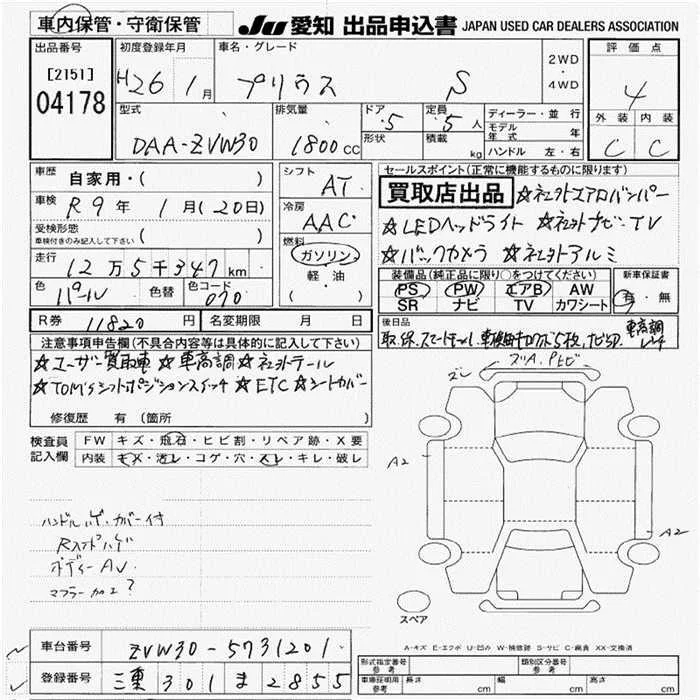 車内保管・守衛保管 JU 愛知 出品申込書 JAPAN USED CAR DEALERS ASSOCIATION
出品番号 初度登録年月 車名・グレード 2WD・4WD 評価点
[2151] 04178 H26年 1月 プリウス S 4
型式 排気量 ドア 5 定員 5人 ディーラー・並行 外装 内装
DAA-ZVW30 1800cc 形状 積載 kg モデル年式 年 C C
ハンドル 左・右
車歴 自家用・( ) シフト AT セールスポイント(正常に機能するものに限ります)
車検 R9年 1月(20日) 冷房 AAC 買取店出品 ☆社外エアロバンパー
受検形態 車検付きのみ記入して下さい ( ) ☆LEDヘッドライト ☆社外ナビ・TV
走行 12万5千347km 燃料 ガソリン・軽・油 ☆バックカメラ ☆社外アルミ
色 パール 色替 色コード 070 装備品(純正品に限り○をつけてください) 新車保証書
PS PW エアB AW 有・無
SR ナビ TV カワシート
R券 11820円 名変期限 月 日 後日品
取、保、スマートキー1、
車高調
注意事項申告欄(不具合内容等は具体的に記入して下さい)
☆ユーザー買取車 ☆車高調 ☆社外テール
☆TOM'sシフトポジションスイッチ ☆ETC ☆シートカバー
修復歴 有 (箇所 )
検査員記入欄 FW キズ・飛石・ヒビ割・リペア跡・X要
内装 キズ・汚レ・コゲ・穴・スレ・キレ・破レ
ズレ ズA、Pヒビ
A2
A2
ハンドルハゲ・カバー付
ボディーAV.
マフラー加工?
スペア
A-キズ E-エクボ U-凹み W-補修跡 S-サビ C-腐食 XX-交換済
車台番号 ZVW30-5731201
登録番号 三重 301 ま 2855
型式指定番号 参考 類別区分番号 参考
車庫証明用 参考 長さ cm 幅 cm 高さ cm